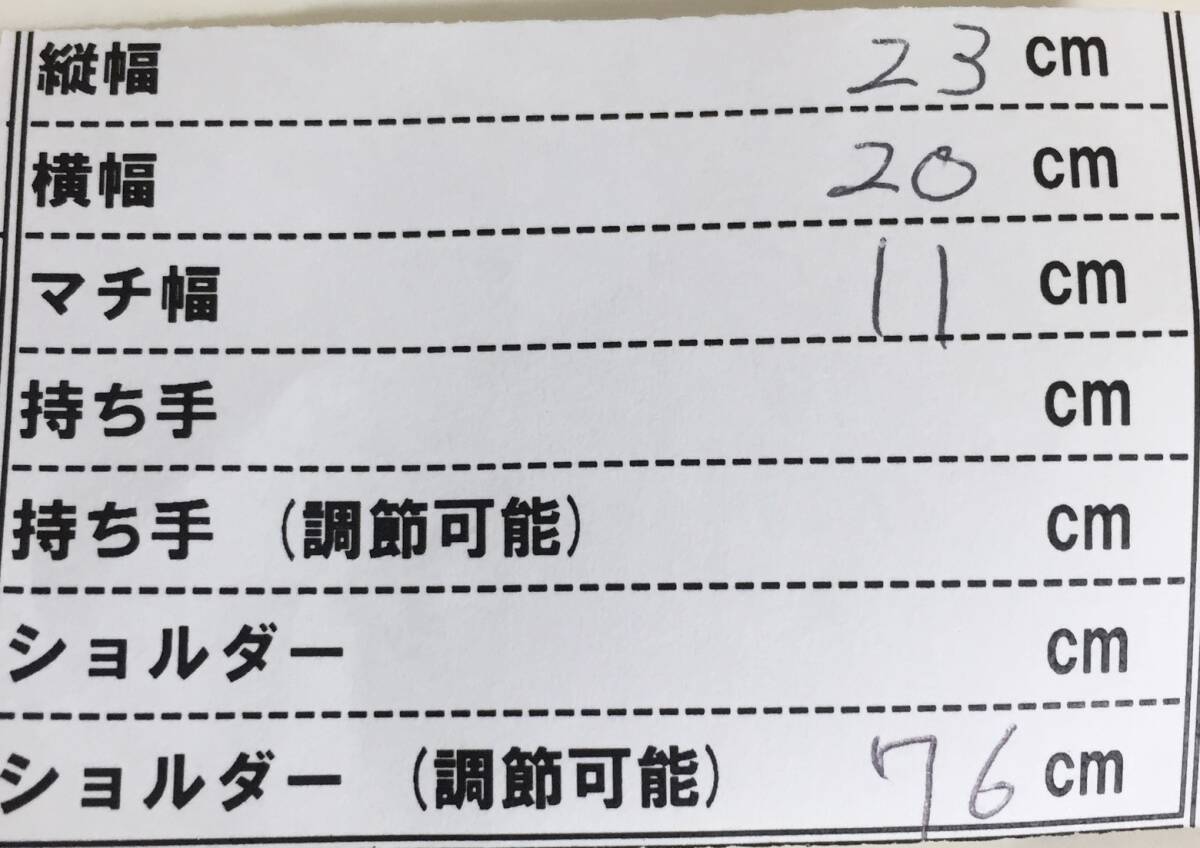 縦幅 23 cm
横幅 20 cm
マチ幅 11 cm
持ち手 cm
持ち手 (調節可能) cm
ショルダー cm
ショルダー (調節可能) 76 cm